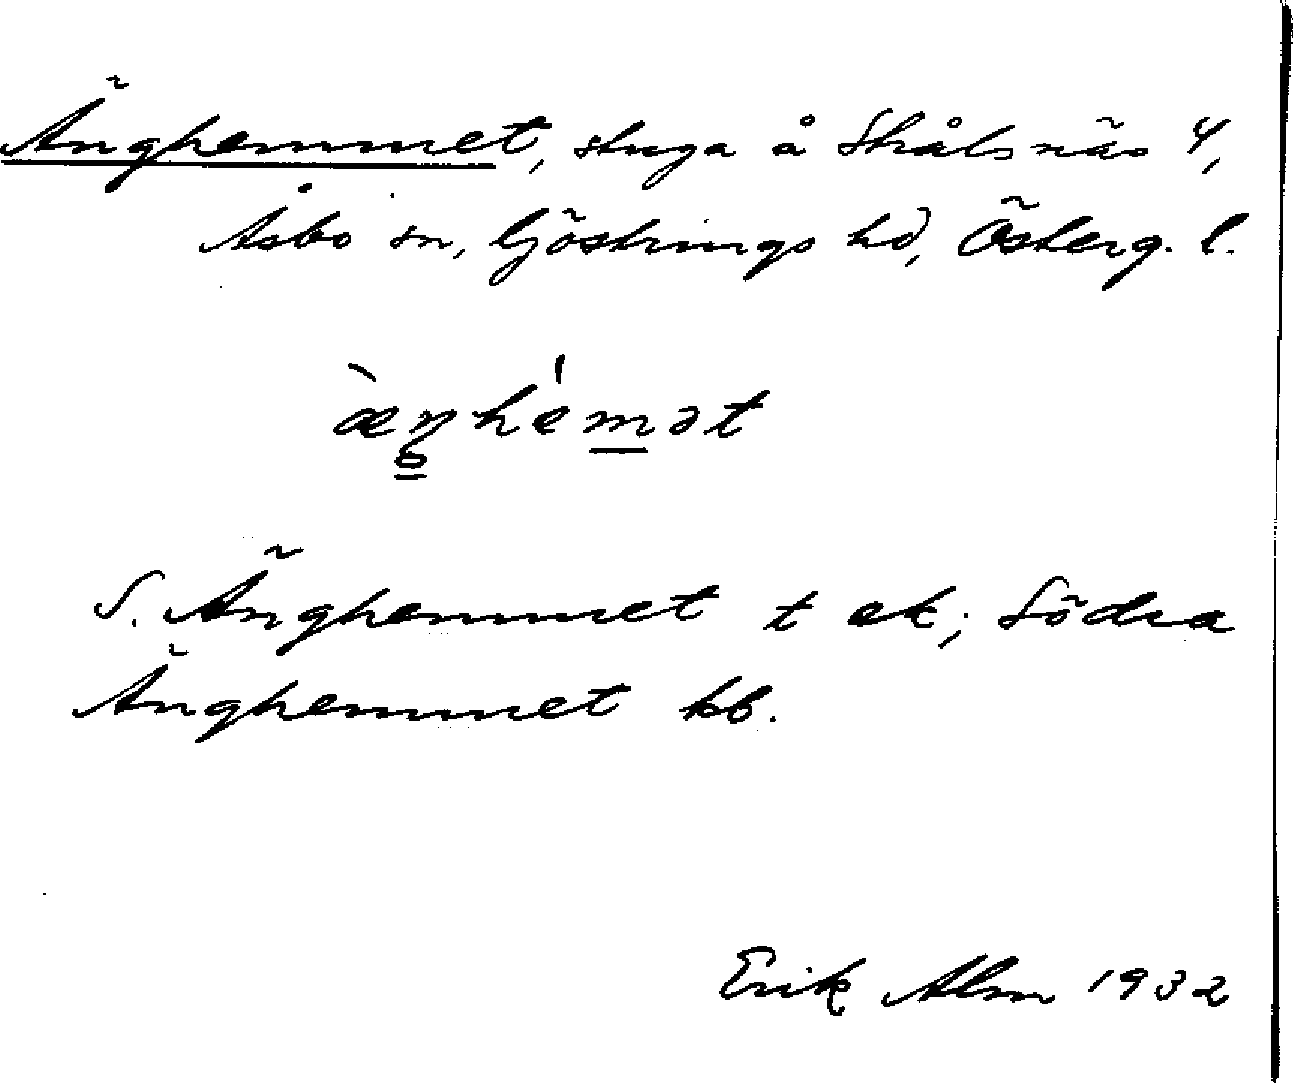 Änghemmet, stuga å Skålsnäs 4,
Åsbo sn, Göstrings hd, Österg. l.
æŋhemət
S. Änghemmet t ek; Södra
Änghemmet kb.
Erik Alm 1932